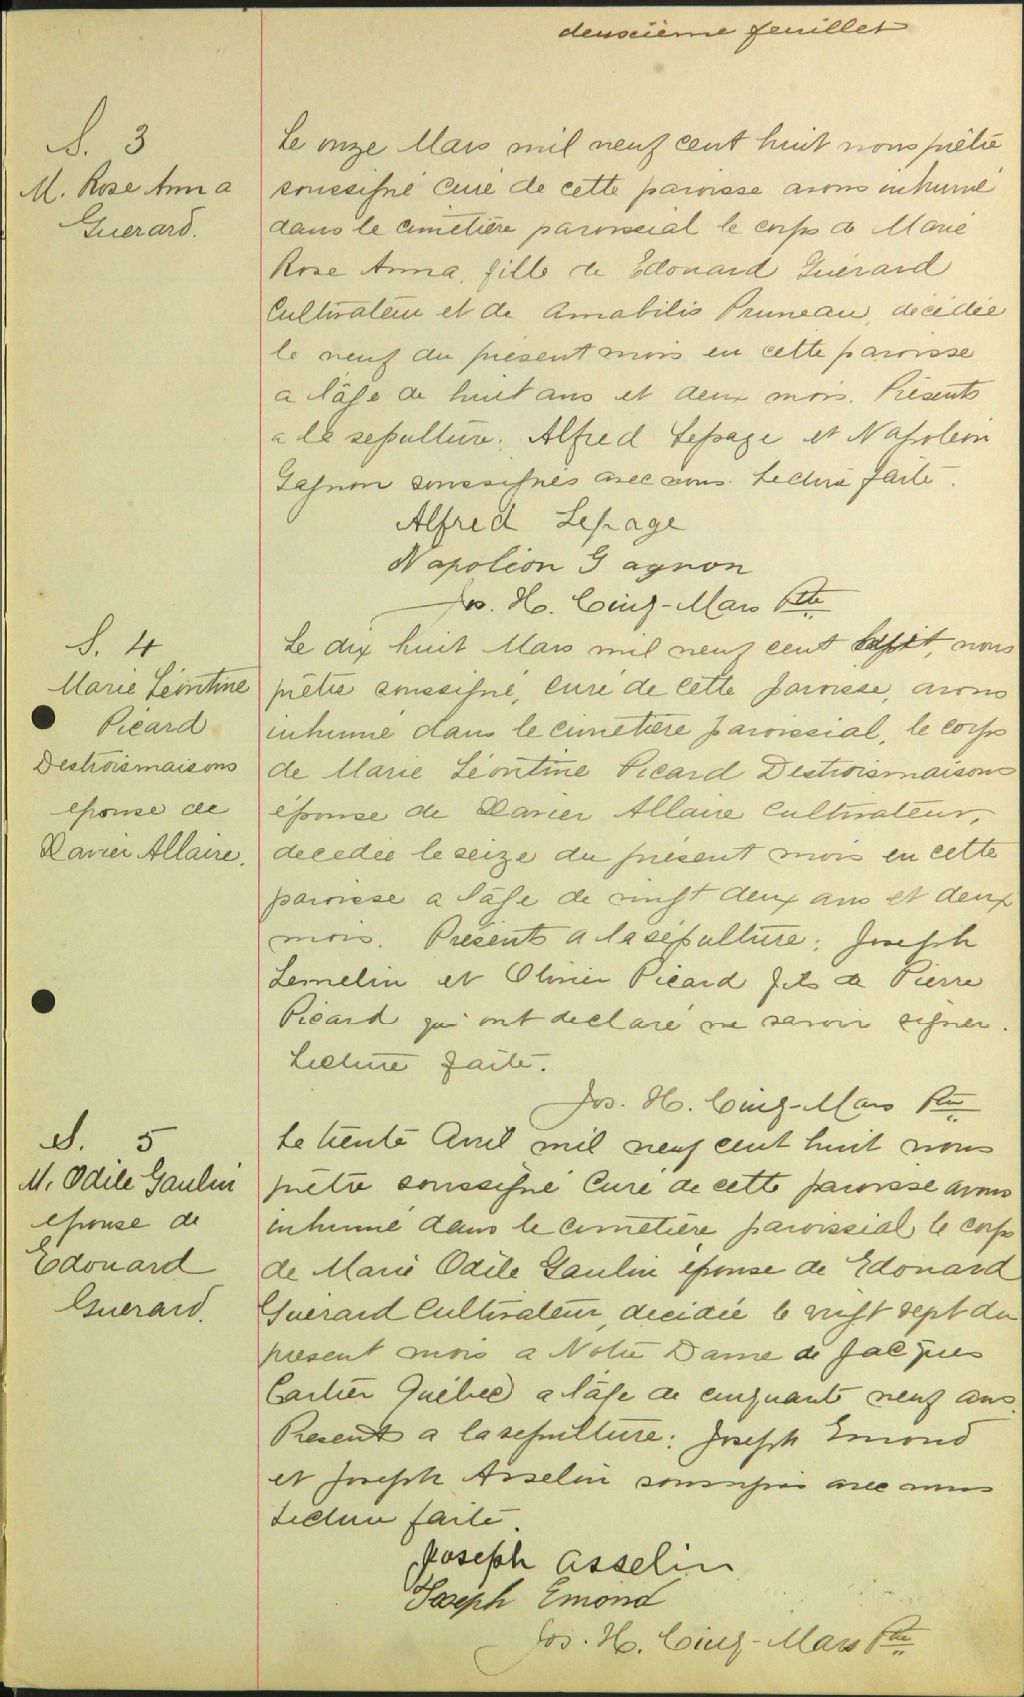 deuxième feuillet
S. 3
M. Rose Anna
Guerard.
Le onze Mars mil neuf cent huit nous prêtre
soussigné curé de cette paroisse avons inhumé
dans le cimetière paroissial le corps de Marie
Rose Anna, fille de Edouard Guérard
Cultivateur et de Amabilis Pruneau, décédée
le neuf du présent mois en cette paroisse
a l'âge de huit ans et deux mois. Présents
a la sepulture: Alfred Lepage et Napoléon
Gagnon soussignés avec nous. Lecture faite.
Alfred Lepage
Napoléon Gagnon
Jos. H. Cinq-Mars Ptre
S. 4
Marie Léontine
Picard
Destroismaisons
epouse de
Xavier Allaire.
Le dix huit Mars mil neuf cent huit, nous
prêtre soussigné, curé de cette paroisse, avons
inhumé dans le cimetière paroissial, le corps
de Marie Léontine Picard Destroismaisons
épouse de Xavier Allaire Cultivateur,
decedée le seize du présent mois en cette
paroisse a l'âge de vingt deux ans et deux
mois. Présents a la sépulture: Joseph
Lemelin et Olivier Picard fils de Pierre
Picard qui ont declaré ne savoir signer.
Lecture faite.
Jos. H. Cinq-Mars Ptre
S. 5
M. Odile Gaulin
epouse de
Edouard
Guerard.
Le trente Avril mil neuf cent huit nous
prêtre soussigné Curé de cette paroisse avons
inhumé dans le cimetière paroissial le corps
de Marie Odile Gaulin épouse de Edouard
Guérard Cultivateur, decidée le vingt sept du
present mois a Notre Dame de Jacques
Cartier Québec) a l'âge de cinquante neuf ans.
Presents a la sepulture: Joseph Emond
et Joseph Asselin soussignés avec nous
Lecture faite.
Joseph Asselin
Joseph Emond
Jos. H. Cinq-Mars Ptre